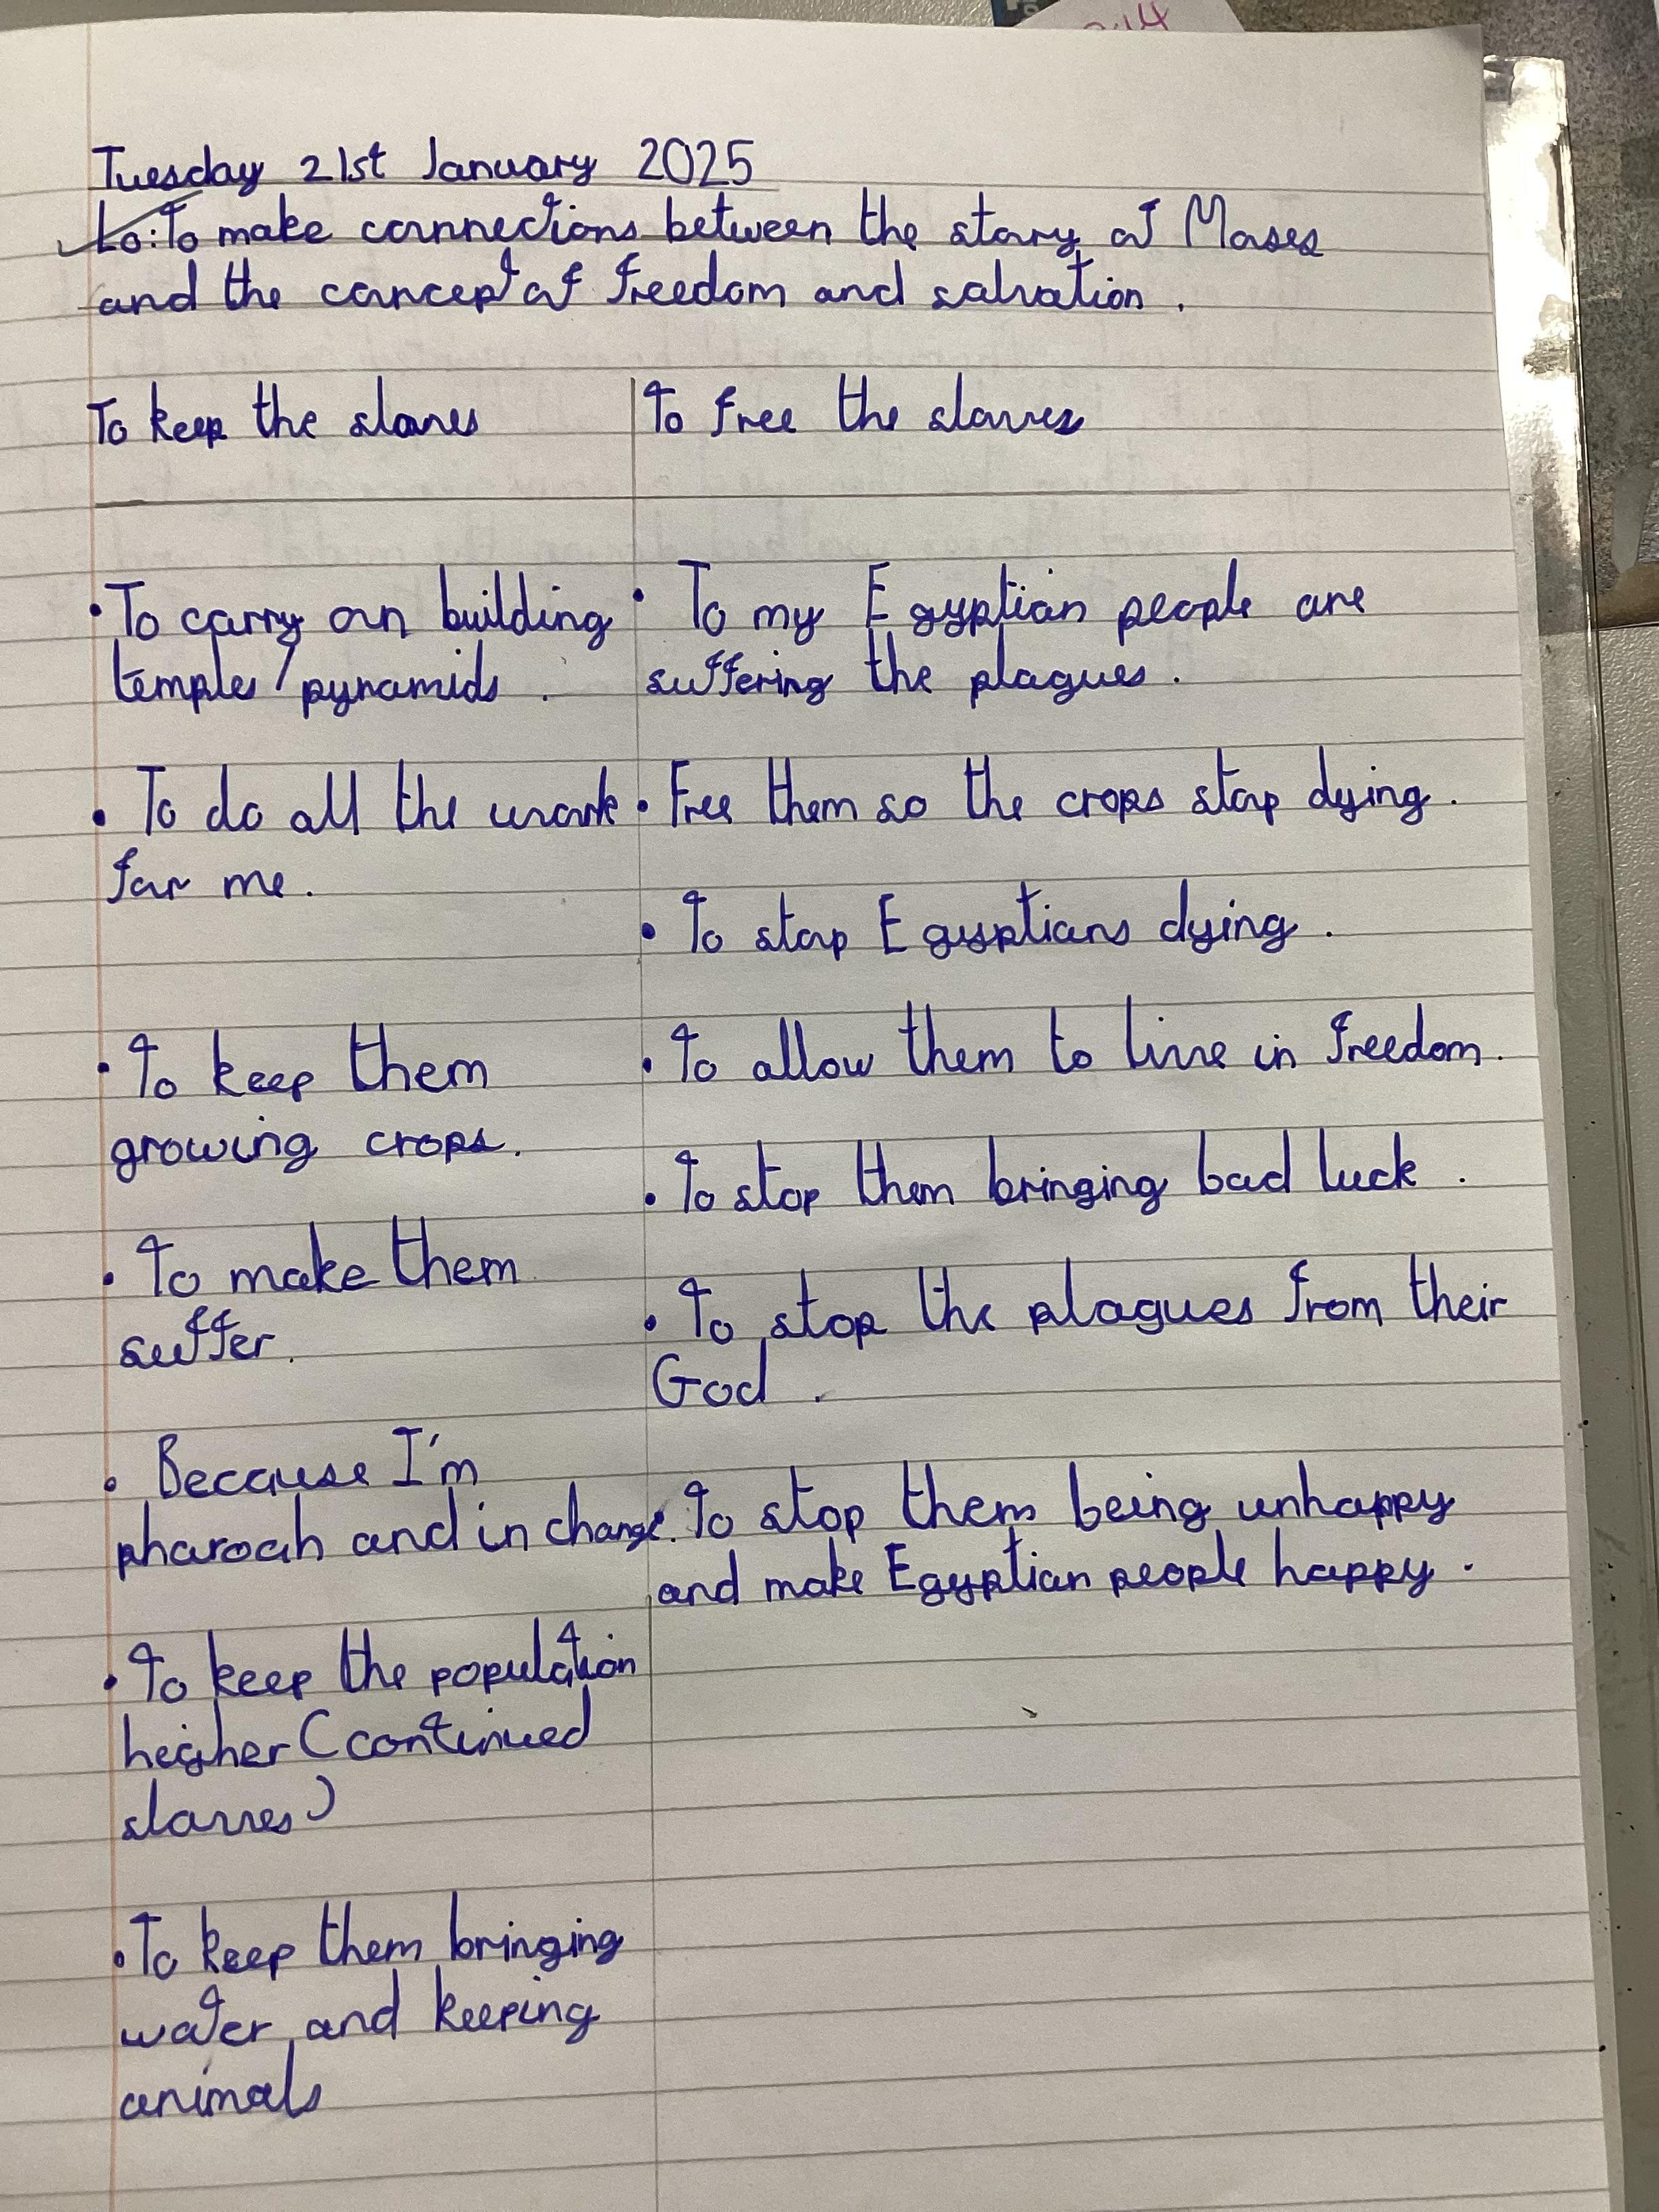 Tuesday 21st January 2025
Lo: To make connections between the story of Moses
and the concept of freedom and salvation.
To keep the slaves
To free the slaves
• To carry on building
temples/pyramids.
• To do all the work
for me.
• To keep them
growing crops.
• To make them
suffer.
• Because I'm
pharoah and in charge.
• To keep the population
heigher (continued
slaves)
• To keep them bringing
water and keeping
animals
• To my Egyptian people are
suffering the plagues.
• Free them so the crops stop dying.
• To stop Egyptians dying.
• To allow them to live in freedom.
• To stop them bringing bad luck.
• To stop the plagues from their
God.
To stop them being unhappy
and make Egyptian people happy.